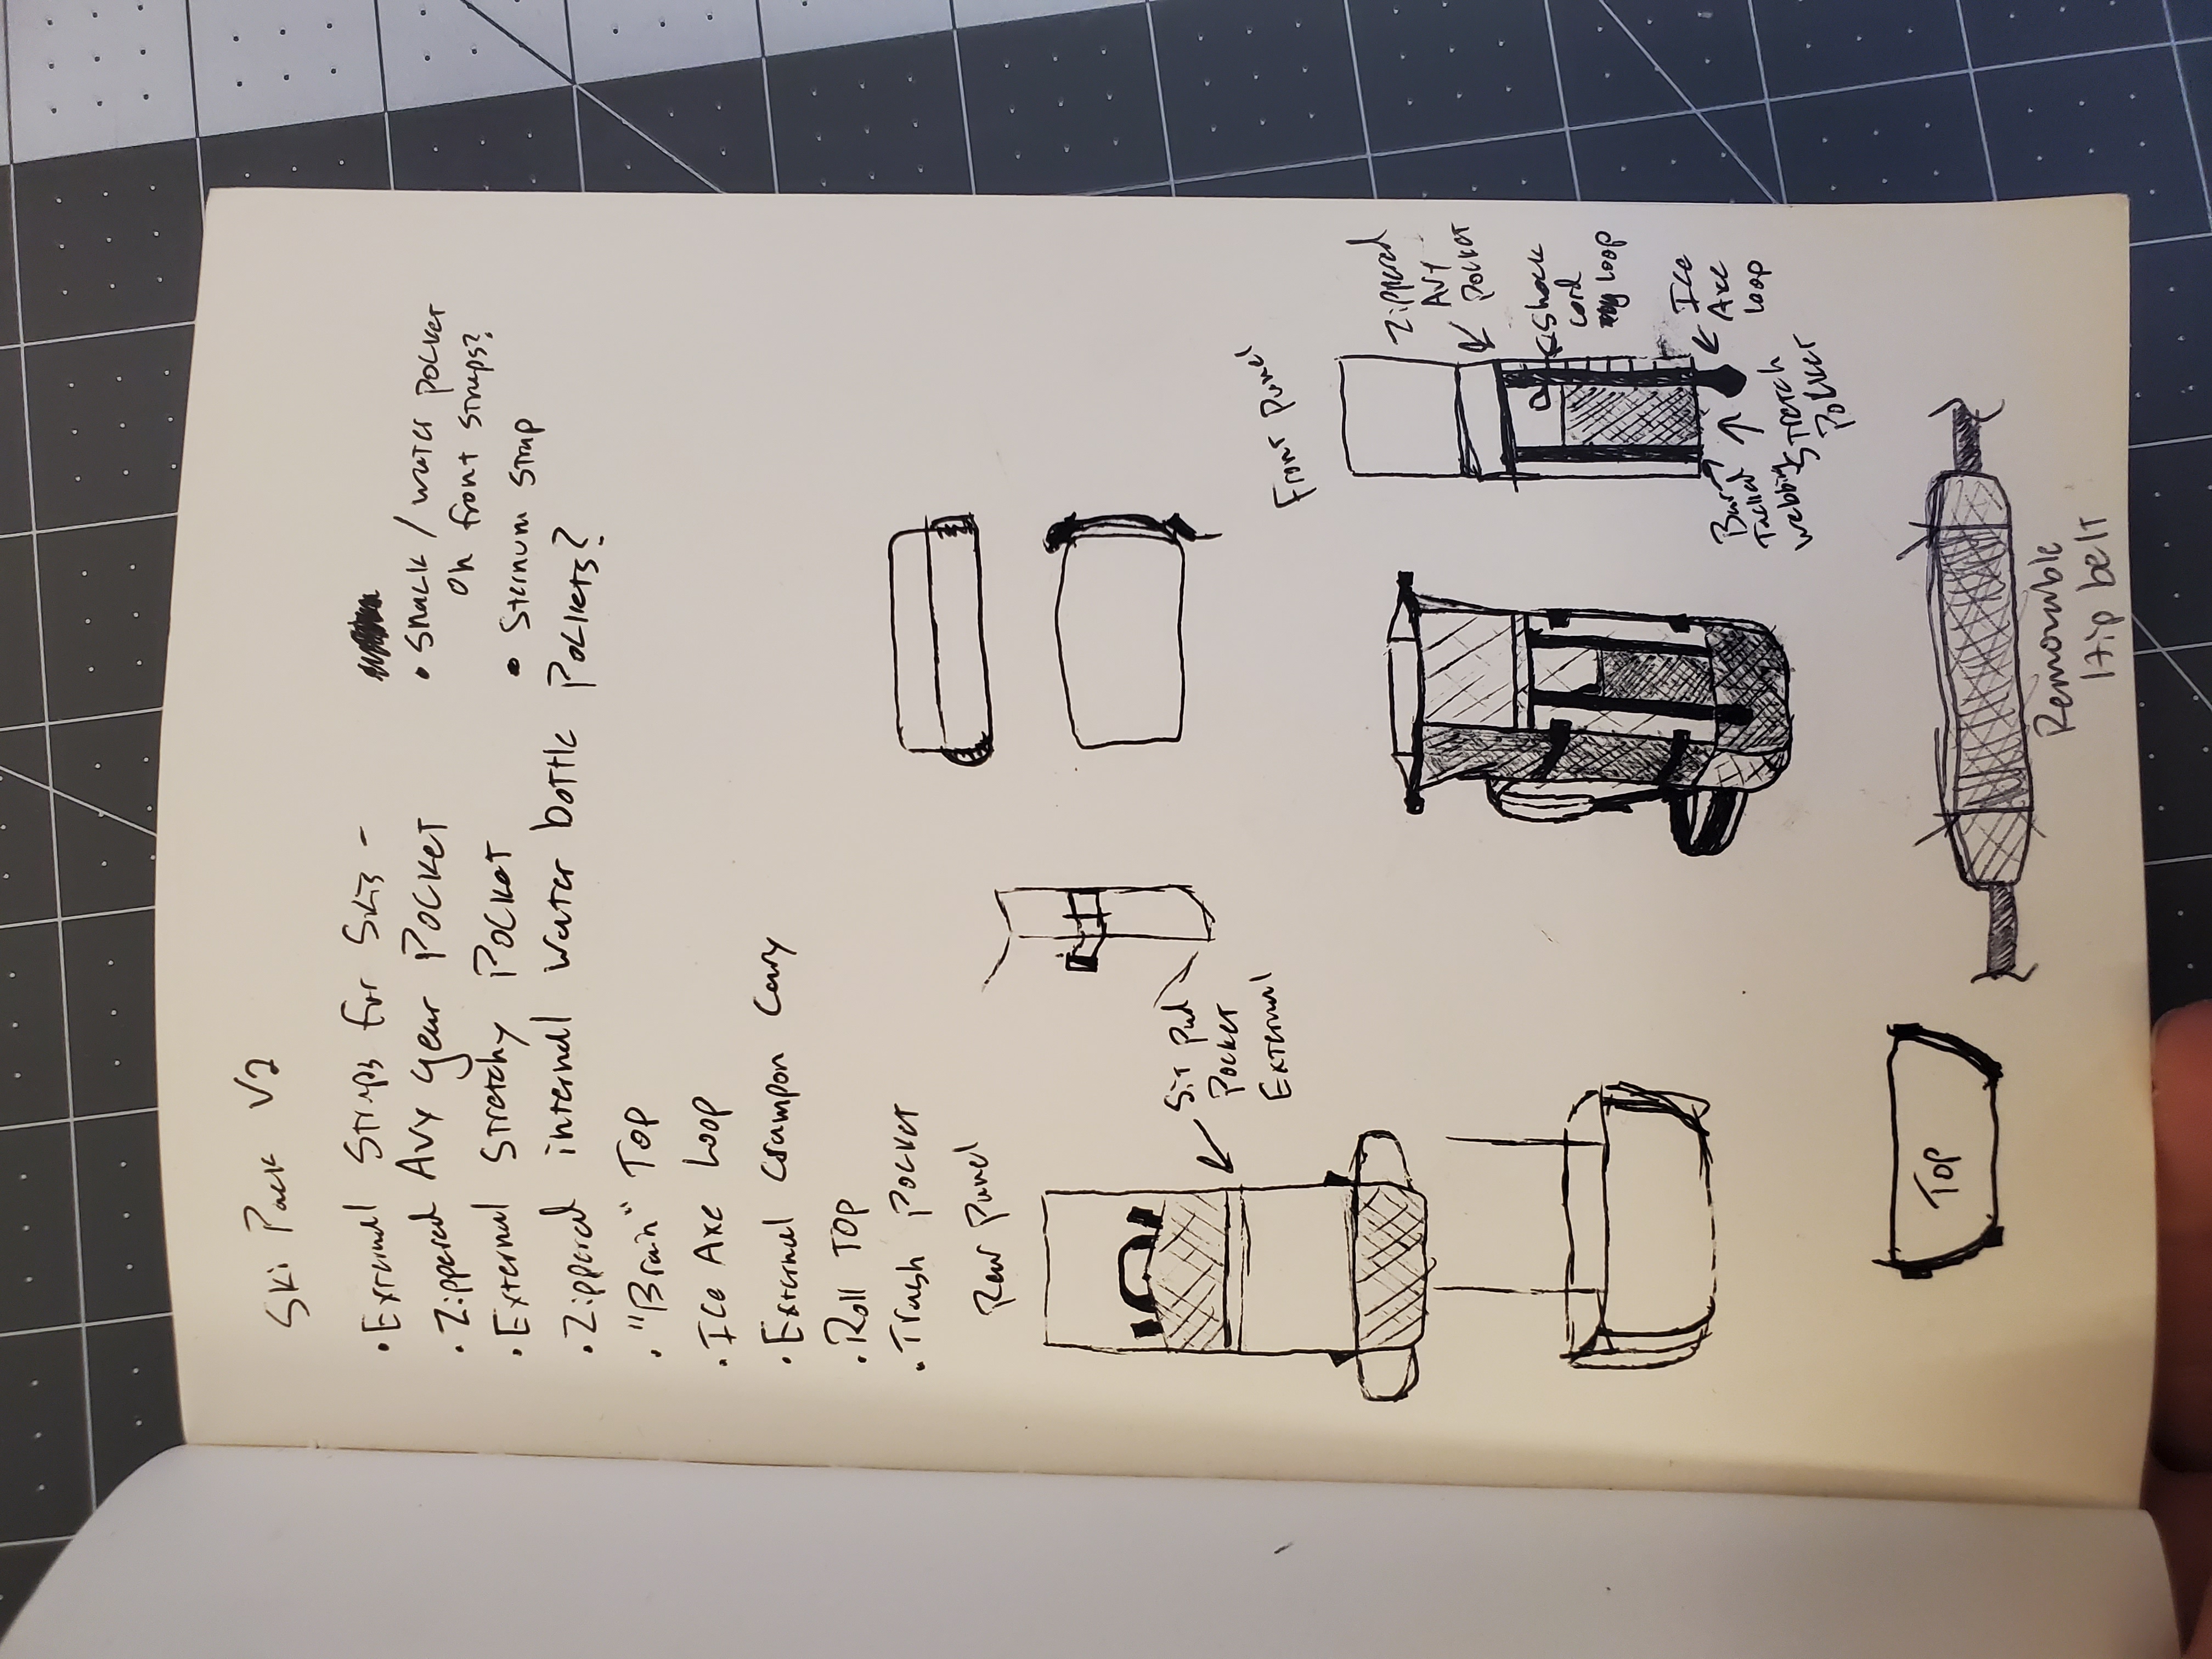 Ski Pack V2
• External Straps for Skis -
• Zippered Avy gear Pocket
• External Stretchy Pocket
• Zippered internal water bottle Pockets?
• "Brain" Top
• Ice Axe Loop
• External Crampon Cary
• Roll Top
• Trash Pocket
• Snack / water pocket
on front straps?
• Sternum Strap
Rear Panel
Sit Pad
Pocket
External
Front Panel
Zippered
Avy
Pocket
Shock
cord
loop
Ice
Axe
loop
Bar
Tacked
webbing
Stretch
Pocket
Top
Removable
Hip belt